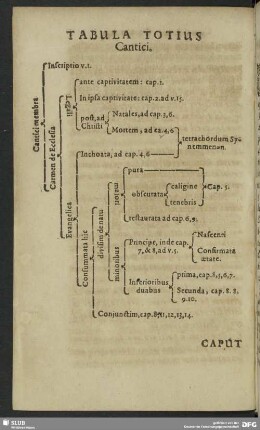 TABULA TOTIUS
Cantici.
Cantici membra
Inscriptio v.1.
Carmen de Ecclesia
Legali
ante captivitatem: cap. 1.
In ipsa captivitate: cap. 2. ad v. 15.
post, ad
Christi
Natales, ad cap. 3, 6.
Mortem, ad ca. 4, 6
tetrachordum Sy-
nemmenon.
Evangelica
Inchoata, ad cap. 4, 6
Consummata hic
divisim de natu
majori
pura
obscurata
caligine
tenebris
Cap. 5.
restaurata ad cap. 6, 9.
minoribus
Principe, inde cap.
7, & 8, ad v. 5.
Nascenti
Confirmata
ætate.
Inferioribus
duabus
prima, cap. 8, 5, 6, 7.
Secunda, cap. 8. 8.
9. 10.
Conjunctim, cap. 8, 11, 12, 13, 14.
CAPUT
SLUB
DFG